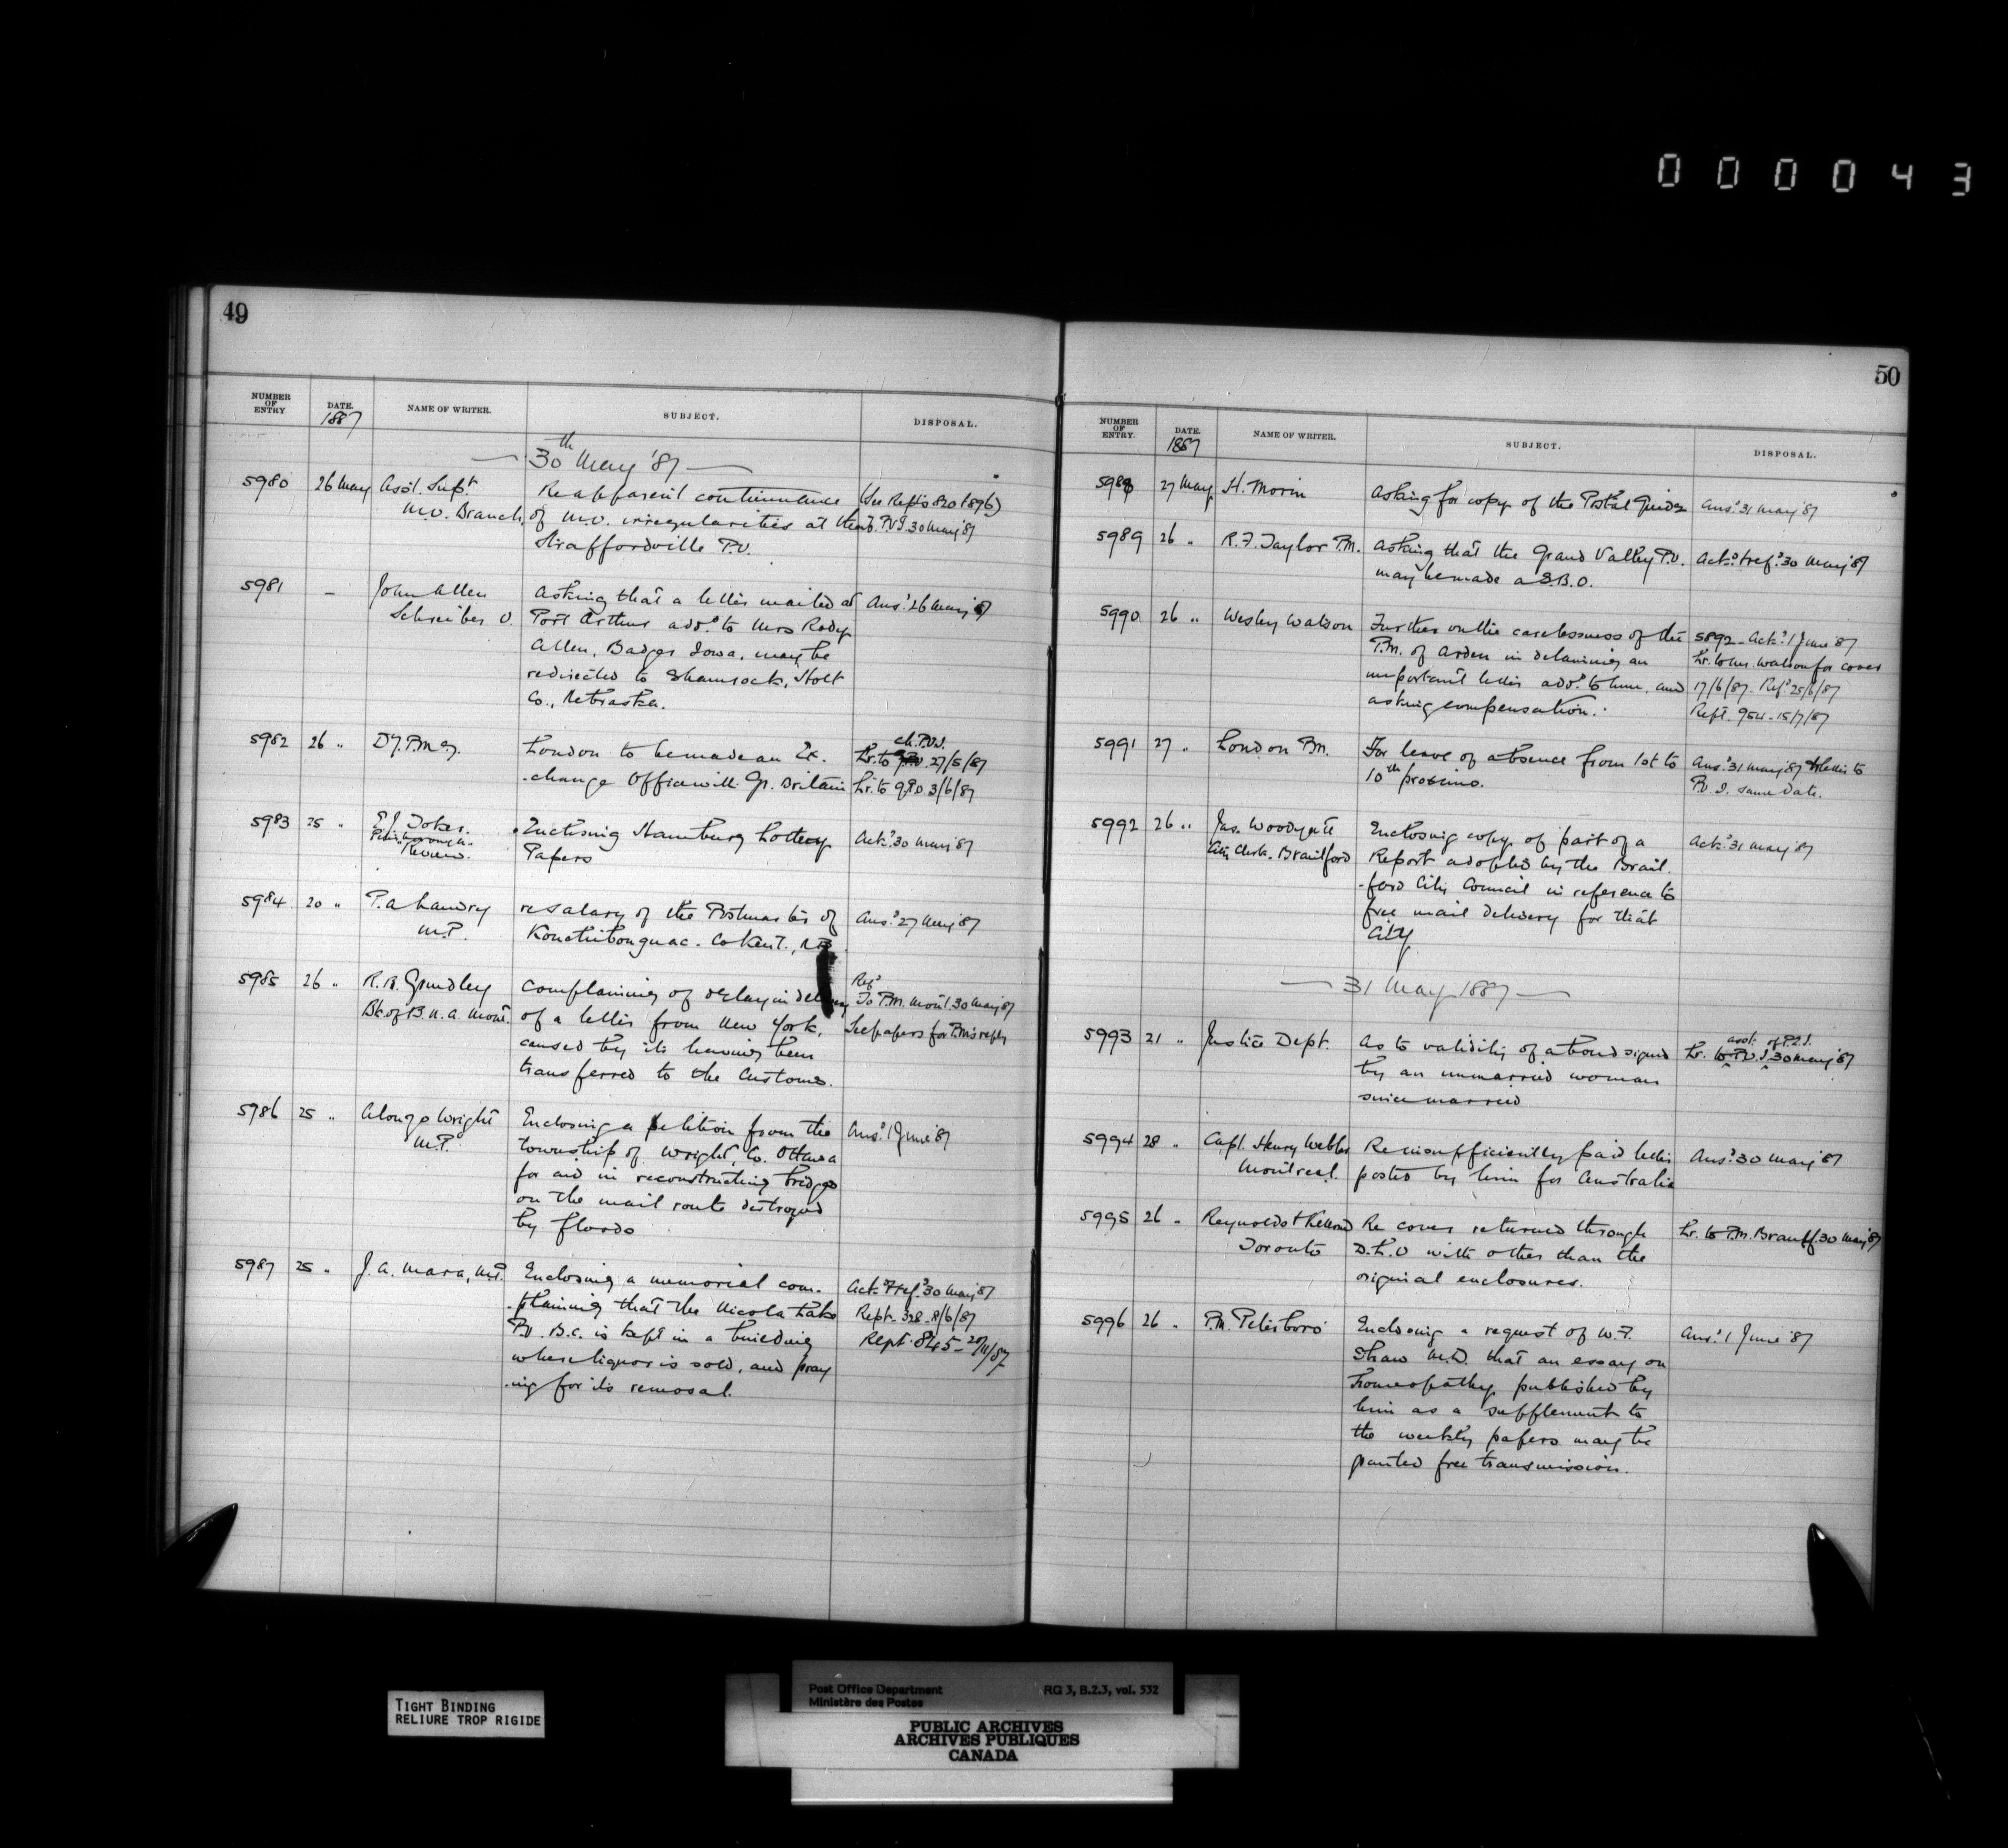 000043
49
NUMBER OF ENTRY
DATE. 1887
NAME OF WRITER.
SUBJECT.
DISPOSAL.
30th May '87
5980 26 May Asst. Supt. Re apparent continuance (See Repts 820 & 896)
M.O. Branch, of M.O. irregularities at the P.O.I. 30 May '87
Straffordville P.O.
5981 – John Allen Asking that a letter mailed at Ansd 26 May 87
Schreiber O. Port Arthur addd to Mrs Rody
Allen, Badger Iowa, may be
redirected to Shamrock, Holt
Co., Nebraska.
5982 26 " Dy. P.M.G. London to be made an Ex- ch. P.O.I.
Lr. to 27/5/87
-change Office with Gt. Britain Lr. to GPO 3/6/87
5983 25 " Enclosing Hamburg Lottery Ackd 30 May '87
Peterborough Papers
"Review".
5984 20 " P.A. Landry re salary of the Postmaster of Ansd 27 May '87
M.P. Kouchibouguac. Co Kent., N.B.
5985 26 " R.R. Grindley Complaining of delay in delivery Refd To P.M. Mont. 30 May '87
Bk. of B.N.A. Mont. of a letter from New York, See papers for P.M's reply
caused by its having been
transferred to the Customs.
5986 25 " Alonzo Wright Enclosing a petition from the Ansd 1 June '87
M.P. township of Wright, Co. Ottawa
for aid in reconstructing bridges
on the mail route destroyed
by floods
5987 25 " J.A. Mara, M.P. Enclosing a memorial com- Ackd & refd 30 May '87
-plaining that the Nicola Lake Rept. 328 - 8/6/87
P.O. B.C. is kept in a building Rept. 845 - 28/11/87
where liquor is sold, and pray
-ing for its removal.
50
NUMBER OF ENTRY.
DATE. 1887
NAME OF WRITER.
SUBJECT.
DISPOSAL.
5988 27 May H. Morin Asking for copy of the Postal Guide Ansd 31 May '87
5989 26 " R.F. Taylor P.M. Asking that the Grand Valley P.O. Ackd & refd 30 May '87
may be made a S.B.O.
5990 26 " Wesley Watson Further on the carelessness of the 5892 - Ackd 1 June '87
P.M. of Arden in detaining an Lr. to Mr. Watson for cover
important letter addd to him, and 17/6/87 - Refd 25/6/87
asking compensation. Rept. 954 - 15/7/87
5991 27 " London P.M. For leave of absence from 1st to Ansd 31 May '87 & letter to
10th proximo. P.O.I. same date.
5992 26 " Jas. Woodyatt Enclosing copy of part of a Ackd 31 May '87
City Clerk - Brantford Report adopted by the Brant-
-ford City Council in reference to
free mail delivery for that
City
31 May 1887
5993 21 " Justice Dept. As to validity of a bond signed asst. of P.O.I.
Lr. to P.O.I. 30 May '87
by an unmarried woman
since married
5994 28 " Capt. Henry Webber Re insufficiently paid letter Ansd 30 May '87
Montreal. posted by him for Australia
5995 26 " Reynolds & Kellond Re cover returned through Lr. to P.M. Branff. 30 May '87
Toronto D.L.O with other than the
original enclosures.
5996 26 " P.M. Peterboro' Enclosing a request of W.F. Ansd 1 June '87
Shaw M.D. that an essay on
homeopathy published by
him as a supplement to
the weekly papers may be
granted free transmission.
TIGHT BINDING
RELIURE TROP RIGIDE
Post Office Department RG 3, B.2.3, vol. 532
Ministère des Postes
PUBLIC ARCHIVES
ARCHIVES PUBLIQUES
CANADA